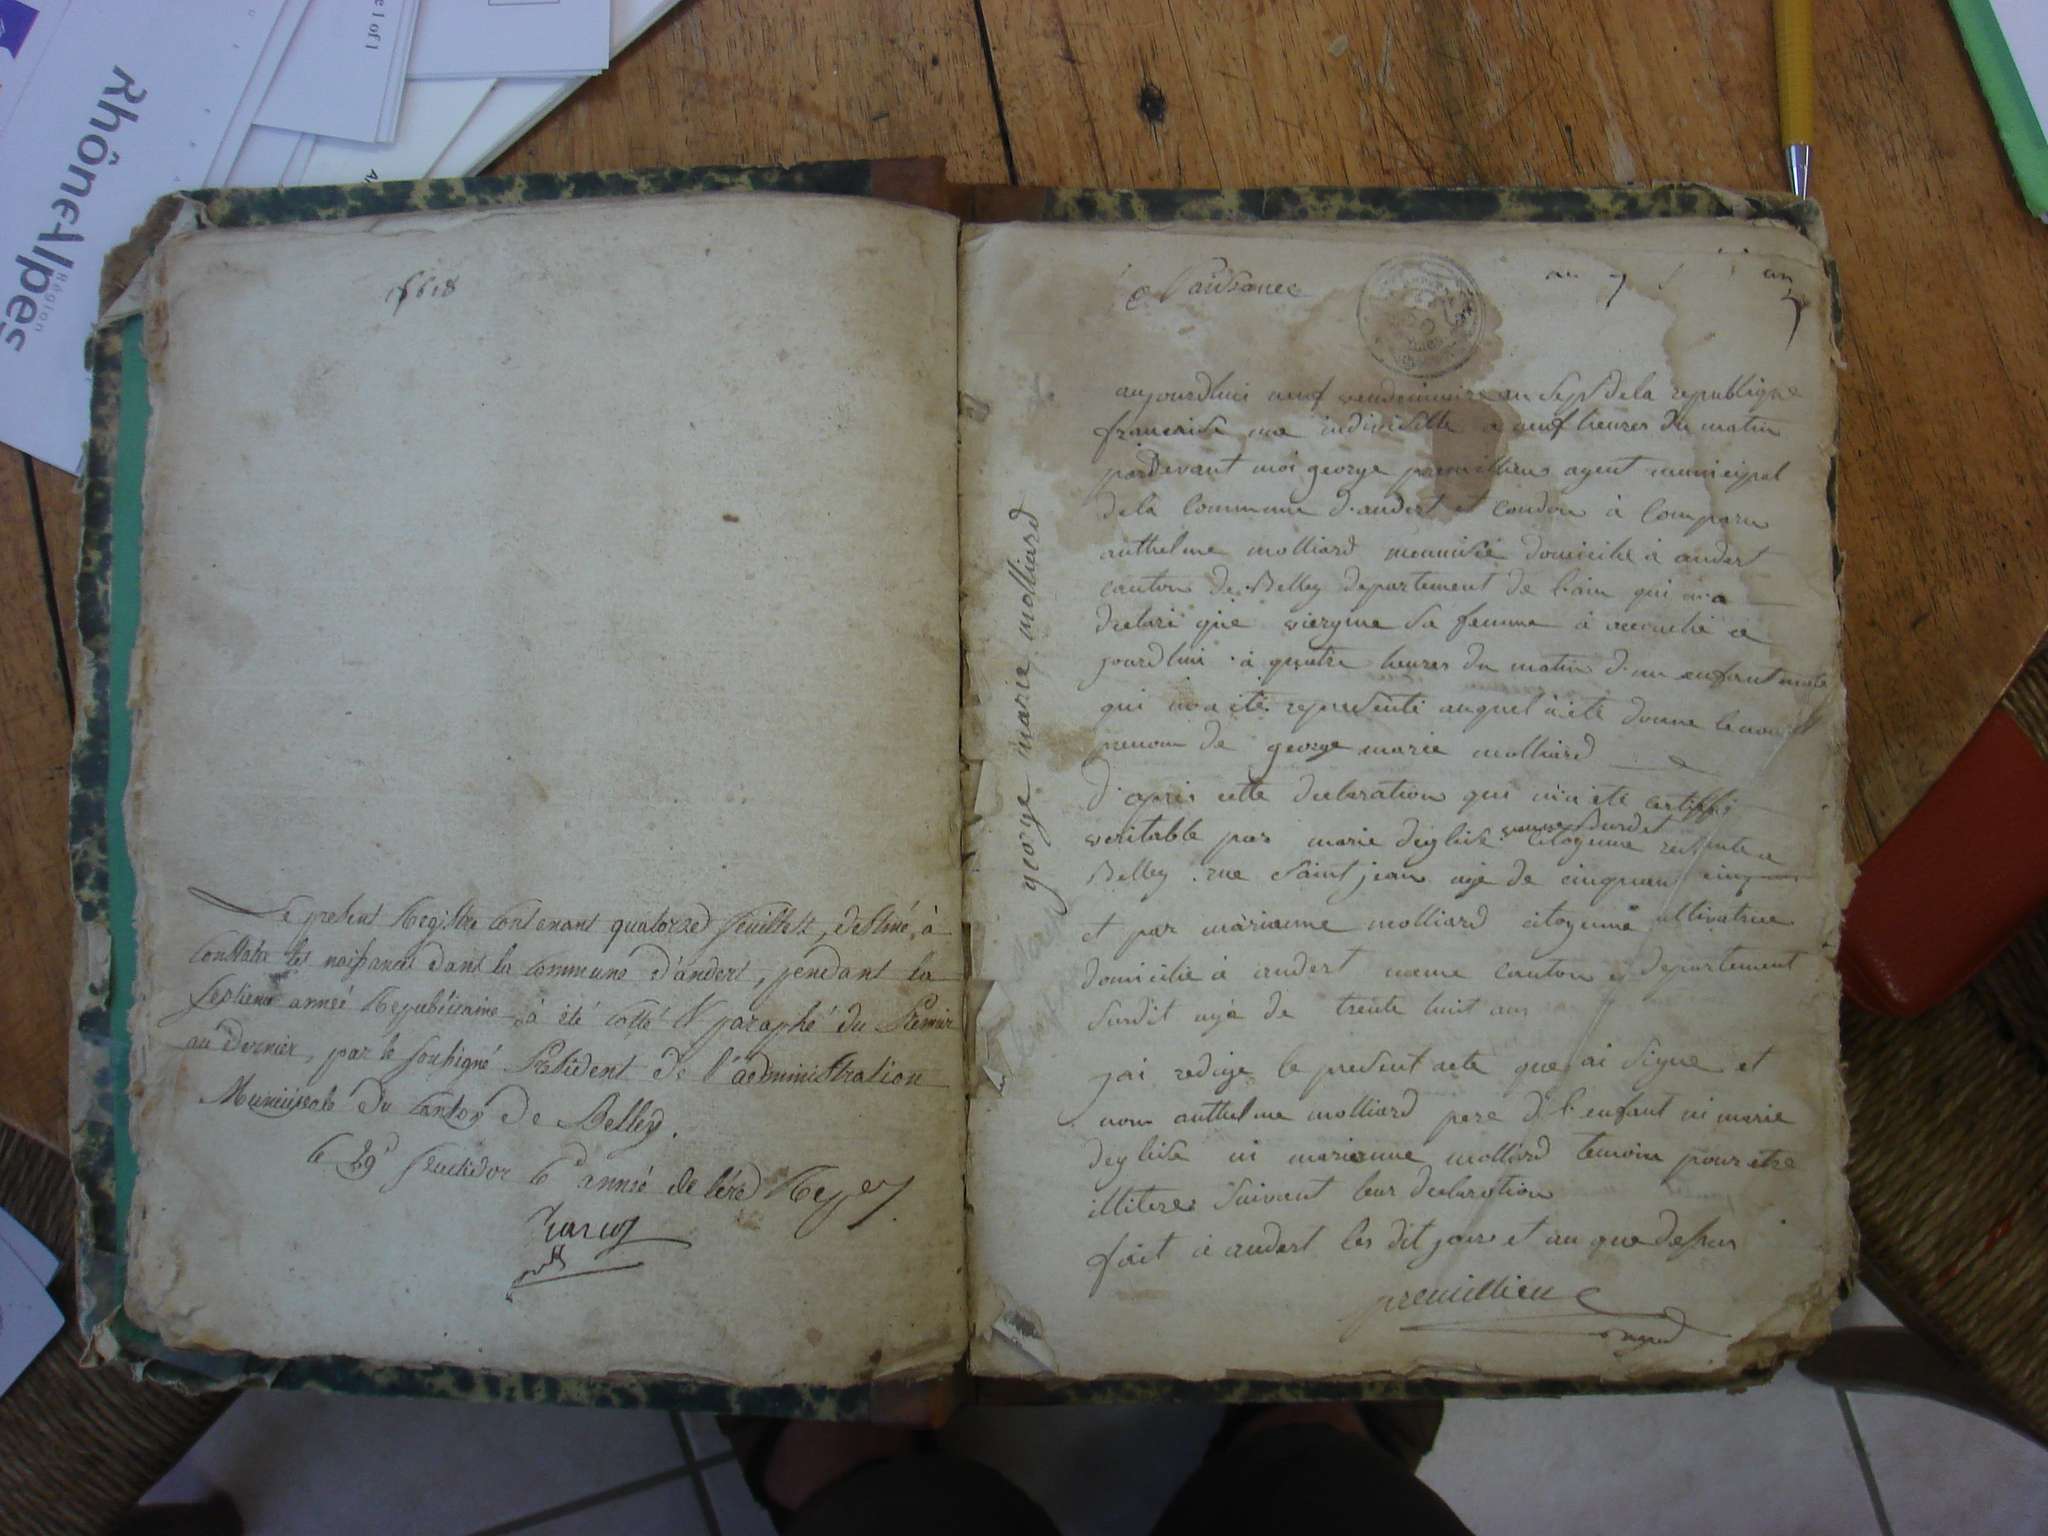 RhôneAlpes
Région
e 1 of 1
Le present Registre Contenant quatorze feuillets, destiné à
Constater les naissances dans la commune d'andert, pendant la
septieme année Republicaine à été cotté & paraphé du Premier
au Dernier, par le soussigné President de l'administration
Municipale du Canton de Belley.
le 29 fructidor 6 année de l'ère
Naissances
an 7
an 7
george marie molliard
aujourdhui neuf vendemiaire an sept de la republique
francaise une indivisible a neuf heures du matin
pardevant moi george premillieu agent municipal
dela Commune d'andert et Condon à Comparu
anthelme molliard domicilié à andert
canton de Belley departement de l'ain qui m'a
declaré que sa femme à accouché a
jourdhui à quatre heures du matin d'un enfant male
qui m'a été representé auquel à été donne le nom et
prenom de george marie molliard
D'apres cette declaration qui m'a été certiffié
veritable par marie deglise citoyenne residente a
Belley rue Saint jean agé de cinquan cinq
et par marianne molliard citoyenne cultivatrice
domicilié à andert meme canton et departement
susdit agé de trente huit ans
jai redigé le present acte que jai signe et
non anthelme molliard pere de l'enfant ni marie
deglise ni marianne molliard temoin pour etre
illiteres suivant leur declaration
fait à andert les dit jour et an que dessus
premillieu
agent